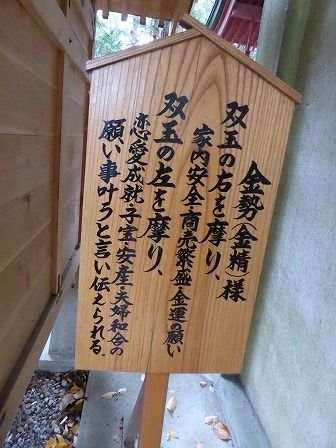 金勢(金精)様
双玉の右を摩り、
家内安全・商売繁盛・金運の願い
双玉の左を摩り、
恋愛成就・子宝・安産・夫婦和合の
願い事叶うと言い伝えられる.